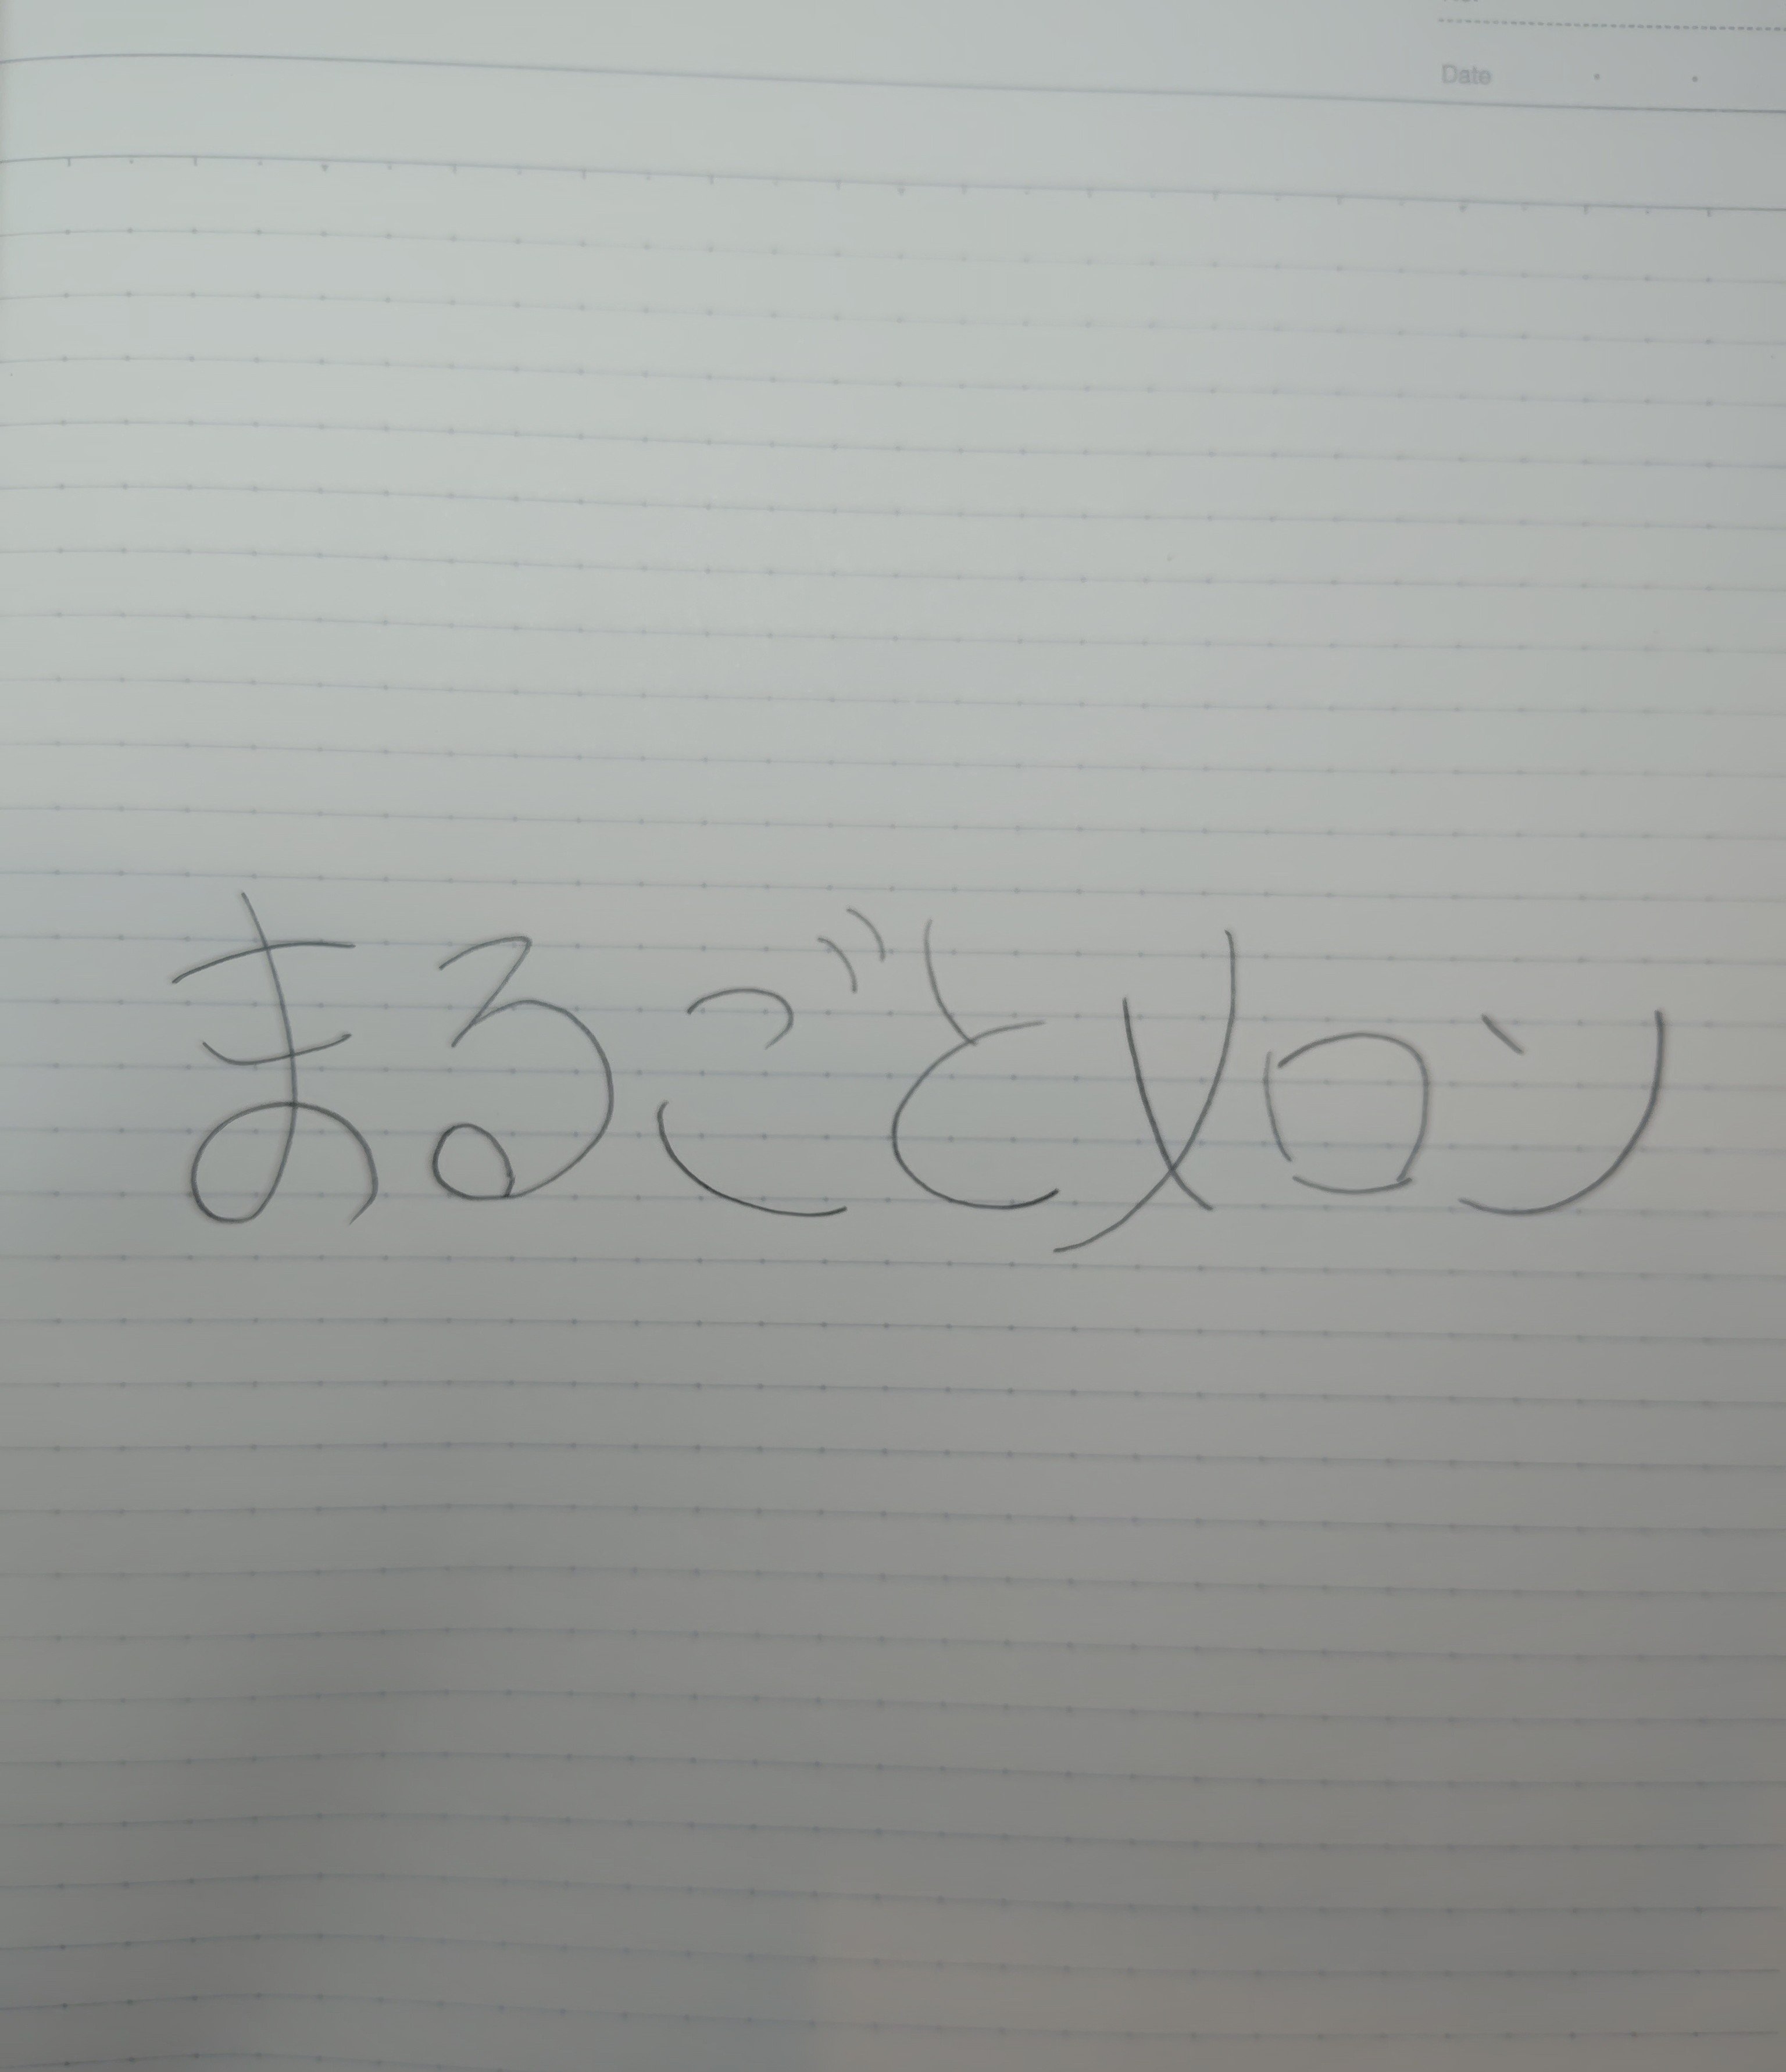 Date
まるごとメロン